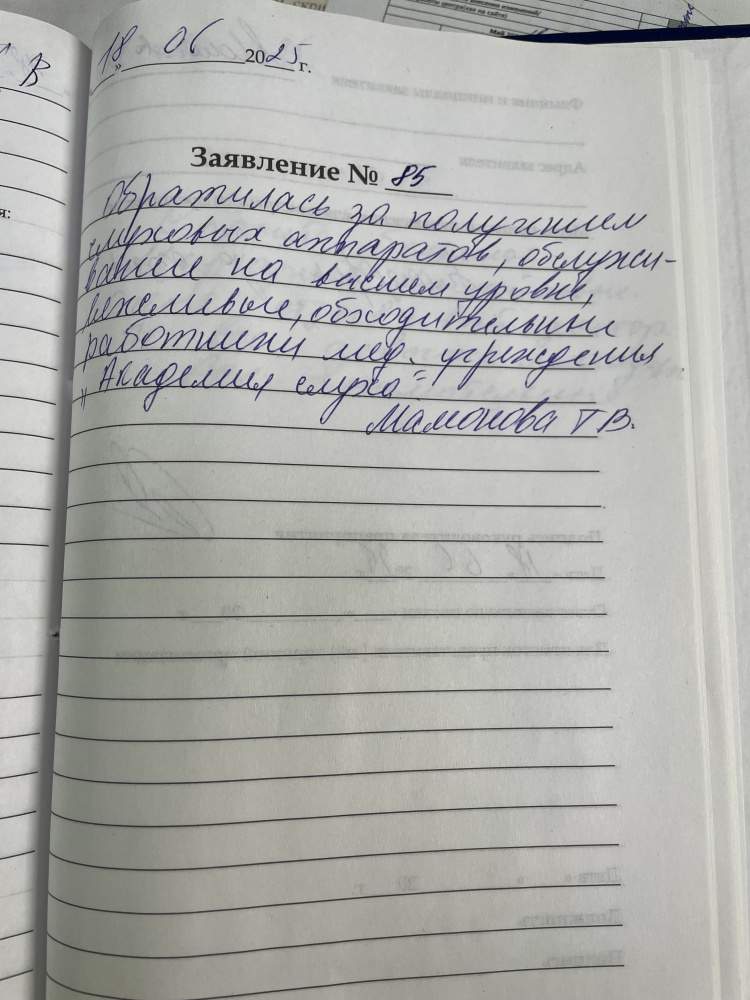 18 06 2025 г.
Заявление № 85
Обратилась за получением
слуховых аппаратов, обслужи-
вание на высшем уровне,
вежливые, обходительные
работники мед. учреждения
"Академия слуха"
Мамонова Т В.
В
я: